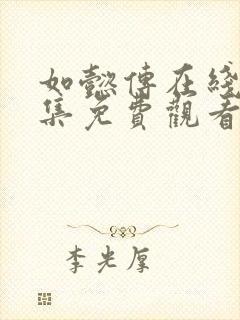 如懿傳在綫
集免費觀看
李光厚